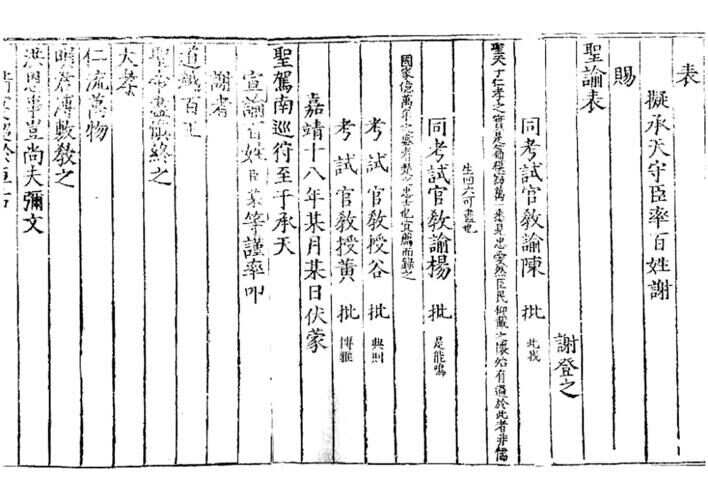 表
擬承天守臣率百姓謝
賜
聖諭表
謝登之
同考試官教諭陳 批 此我
聖天子仁孝之實是篇忠愛然臣民仰戴之懷始有過於此者非儒
生四六可盡也
同考試官教諭楊 批 是能鳴
國家億萬年之慶者忠士也宜薦而錄之
考試官教授谷 批 典則
考試官教授黃 批 博雅
嘉靖十八年某月某日伏蒙
聖駕南巡狩至于承天
宣諭百姓臣某等謹率叩
謝者
道越百王
聖帝盡慎終之
大孝
仁流萬物
溥敷教之
洪恩事豈尚夫彌文
於亘古